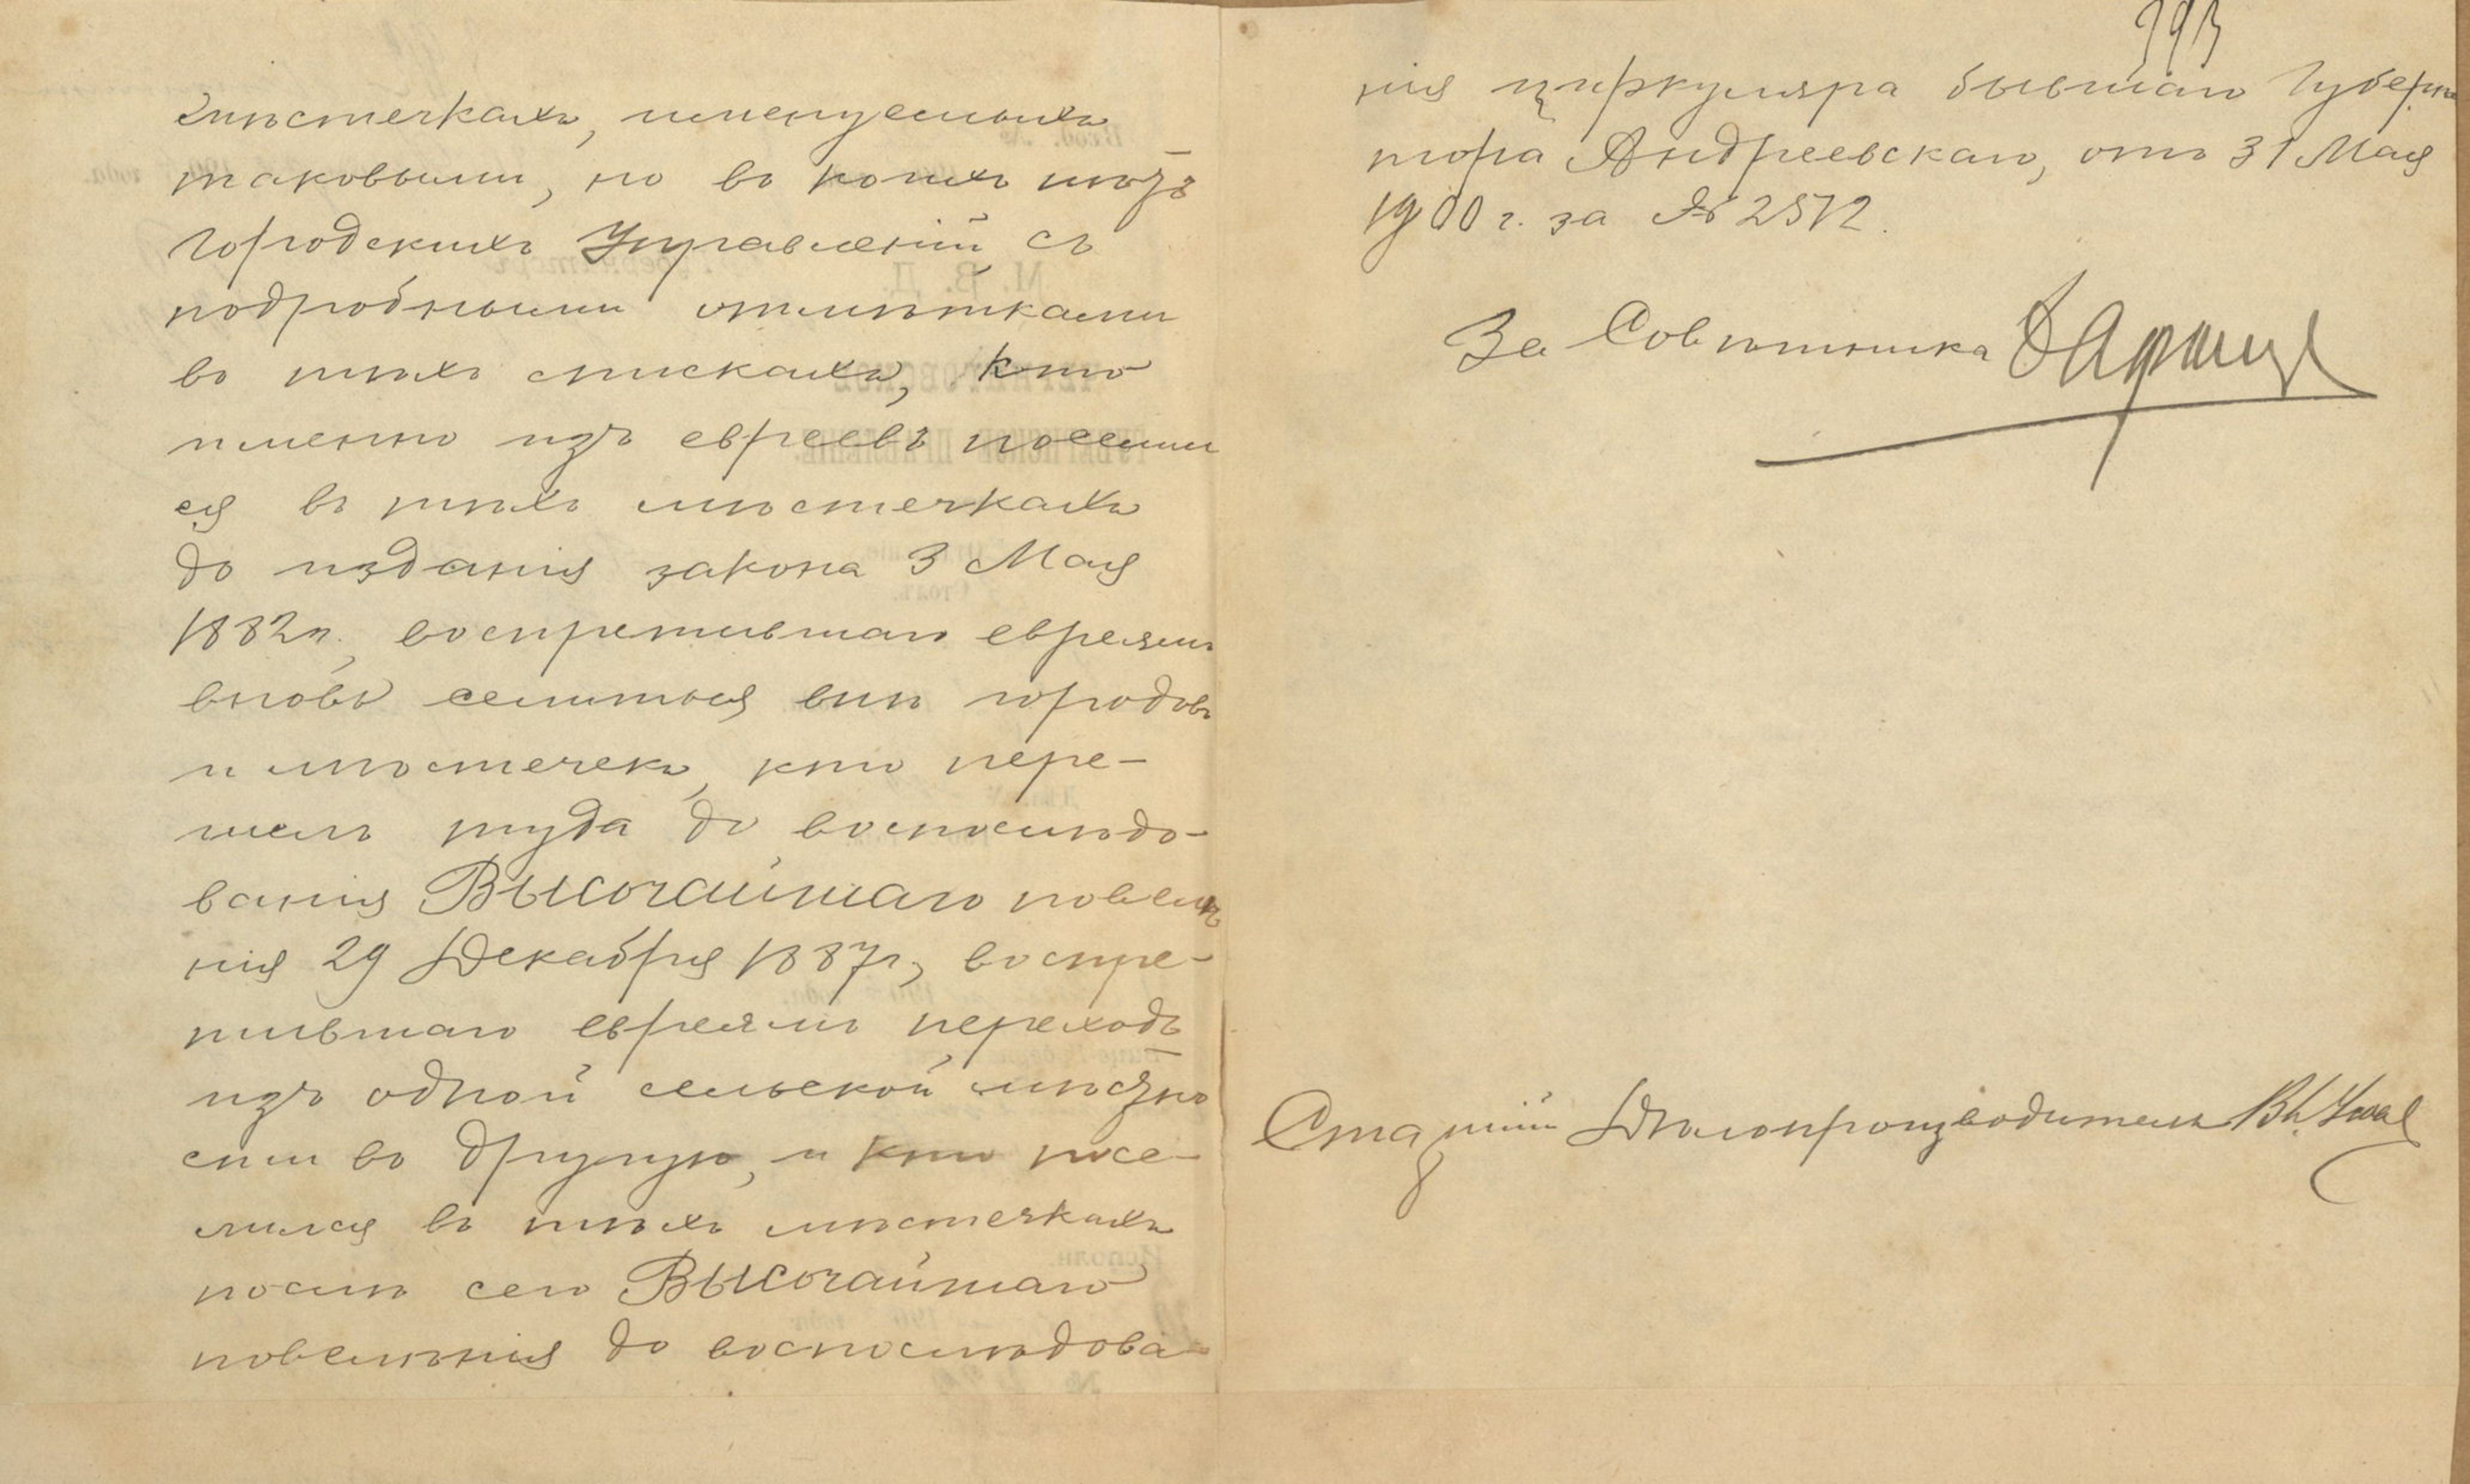 мѣстечкахъ, именуемыхъ
таковыми, но въ коихъ нѣтъ
Городскихъ Управленій, съ
подробными отмѣтками
въ тѣхъ спискахъ, кто
именно изъ евреевъ поселил
ся въ тѣхъ мѣстечкахъ
до изданія закона 3 Мая
1882 г., воспретившаго евреямъ
вновь селиться внѣ городовъ
и мѣстечекъ, кто пере-
шелъ туда до воспослѣдо-
ванія Высочайшаго повелѣ
нія 29 Декабря 1887 г., воспре-
тившаго евреямъ переходъ
изъ одной сельской мѣстно
сти въ другую, и кто посе-
лился въ тѣхъ мѣстечкахъ
послѣ сего Высочайшаго
повелѣнія до воспослѣдова-
393
нія циркуляра бывшаго Губерна
тора Андреевскаго, отъ 31 Мая
1900 г. за № 2572.
За Совѣтника
Старшій Дѣлопроизводитель
М. В. Д.